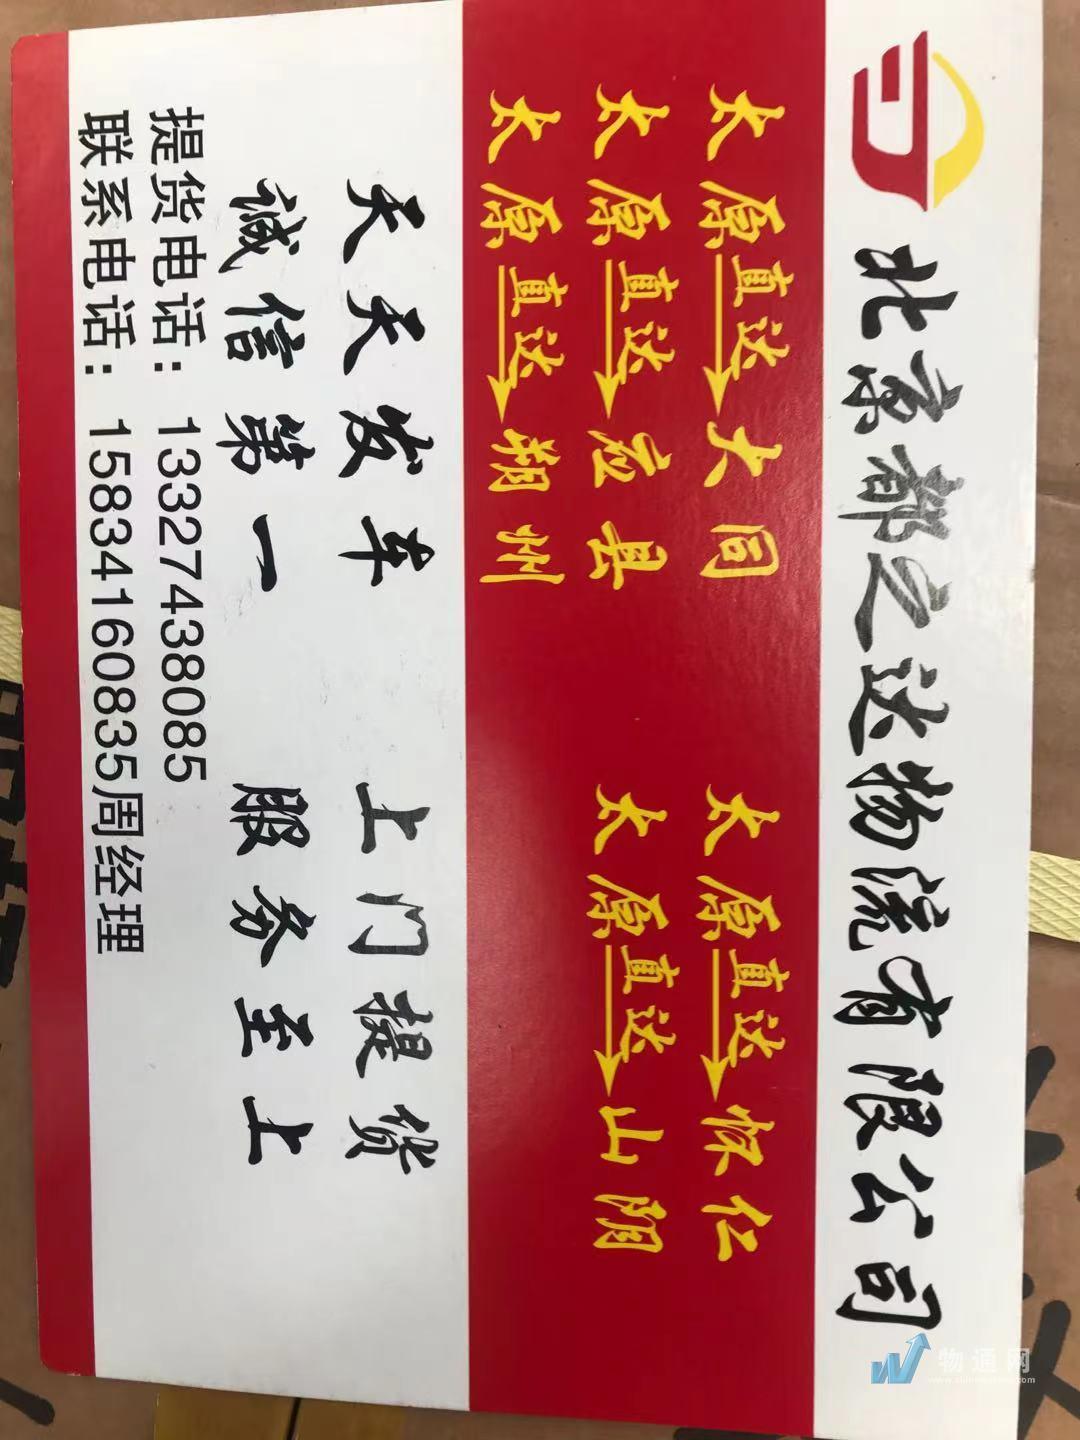 北京都之达物流有限公司
太原直达大同 太原直达怀仁
太原直达应县 太原直达山阴
太原直达朔州
天天发车 上门提货
诚信第一 服务至上
提货电话：13327438085
联系电话：15834160835周经理
物通网